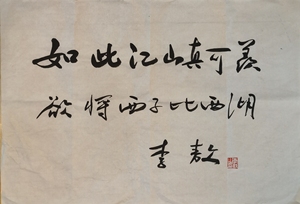 如此江山真可羨
欲将西子比西湖
李敖